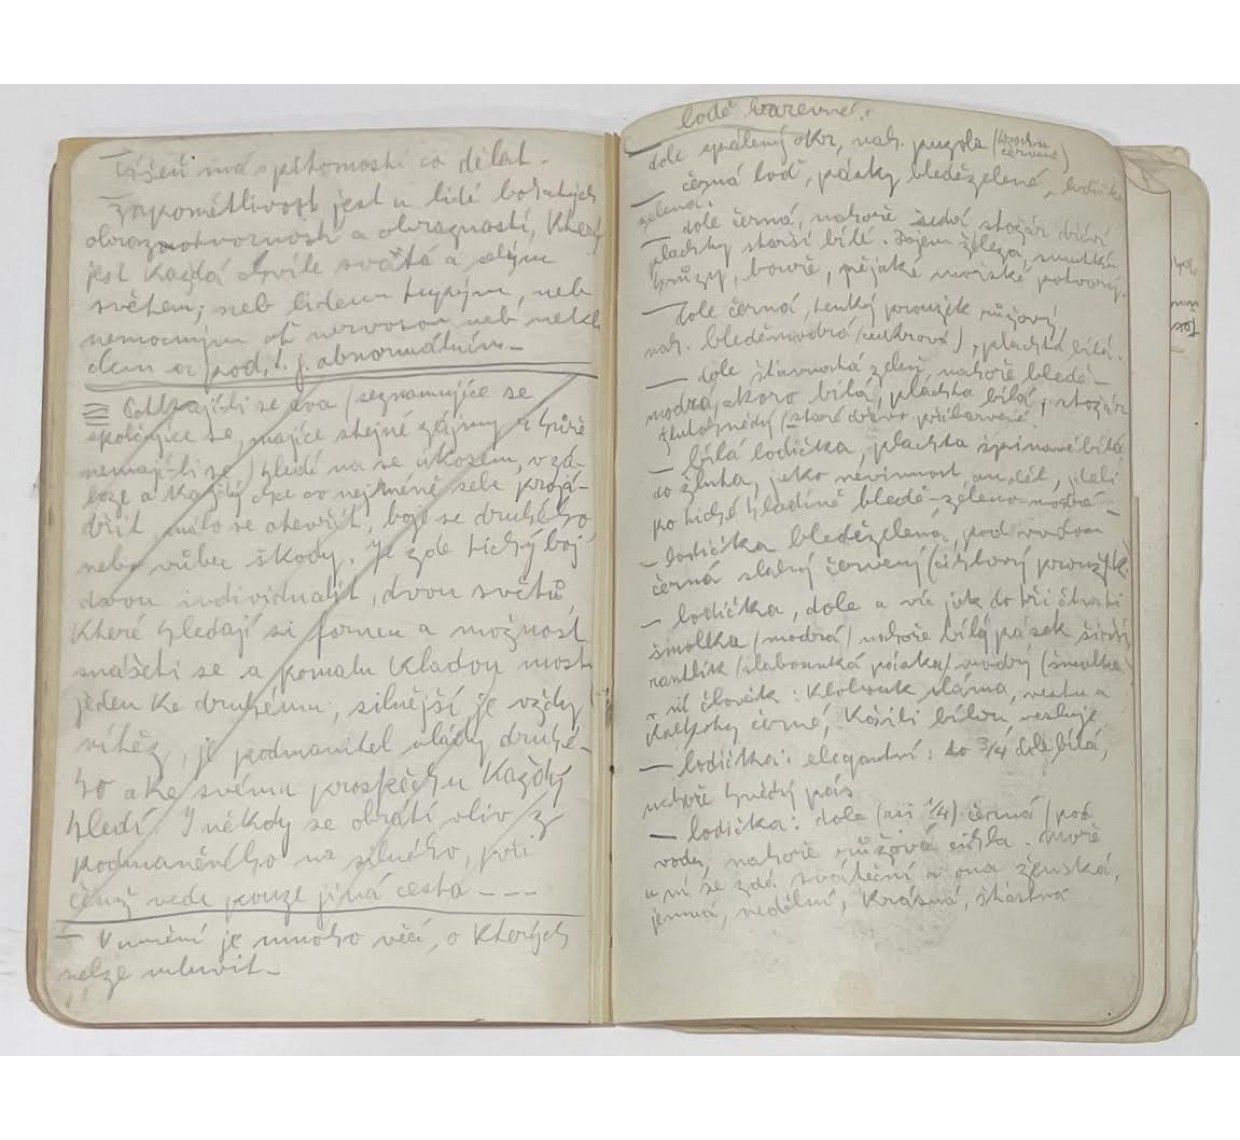 má s přítomností co dělat.
Zapomětlivost jest u lidí bohatých
obrazotvorností a obrazností, který
jest každá chvíle svátá a celým
světem; neb lidem tupým, neb
nemocným ať nervosou neb
a pod., t. j. abnormálním –
se dva / seznamujíce se
spolčujíce se, majíce stejné zájmy a hůře
nemají-li se / hledí na se úkosem, v zá-
loze a každý chce co nejméně sebe projá-
dřit málo se otevřít, boje se druhého
nebo vůbec škody. Je zde tichý boj
dvou individualit, dvou světů,
které hledají si formu a možnost
snášeti se a pomalu kladou mosty
jeden ke druhému, silnější je vždy
vítěz, je podmanitel vlády druhé-
ho a ke svému prospěchu každý
hledí. I někdy se obrátí vliv z
podmaněného na silného, při
čemž vede pouze jiná cesta – – –
– V umění je mnoho věcí, o kterých
nelze mluvit –
lodě barevné:
dole spálený okr, nah. puzola (trochu
červené)
– černá loď, pásky bleděželené, lodička
zelená.
– dole černá, nahoře šedá stožár
plachty starší bílé. Dojem železa, smutku
hrůzy, bouře, nějaké mořské potvory.
– dole černá, tenký proužek růžový,
nah. bleděmodrá (cukrová), plachta bílá.
– dole šťavnatá zeleň, nahoře bledě-
modrá, skoro bílá, plachta bílá, stožár
žlutohnědý (staré dřevo přibarvené.
– bílá lodička, plachta špinavě bílá
do žluta, jako nevinnost, anděl,
po tiché hladině bledě-zeleno-modré –
– lodička bleděželená, pod vodou
černá slabý červený (cihlový proužek
– lodička, dole a víc jak do tří čtvrti
šmolka / modrá / nahoře bílý pásek širší
rantlík / slabounká páska / modrý (šmolka
v ní člověk: klobouk sláma, vestu a
kalhoty černé, košili bílou vesluje
– lodička: elegantní: do 3/4 dole bílá,
nahoře hnědý pás
– lodička: dole (asi 1/4) černá / pod
vodou, nahoře růžová cihla. Moře
v ní se zdá sváteční a ona ženská,
jemná, nedělní, krásná, šťastná